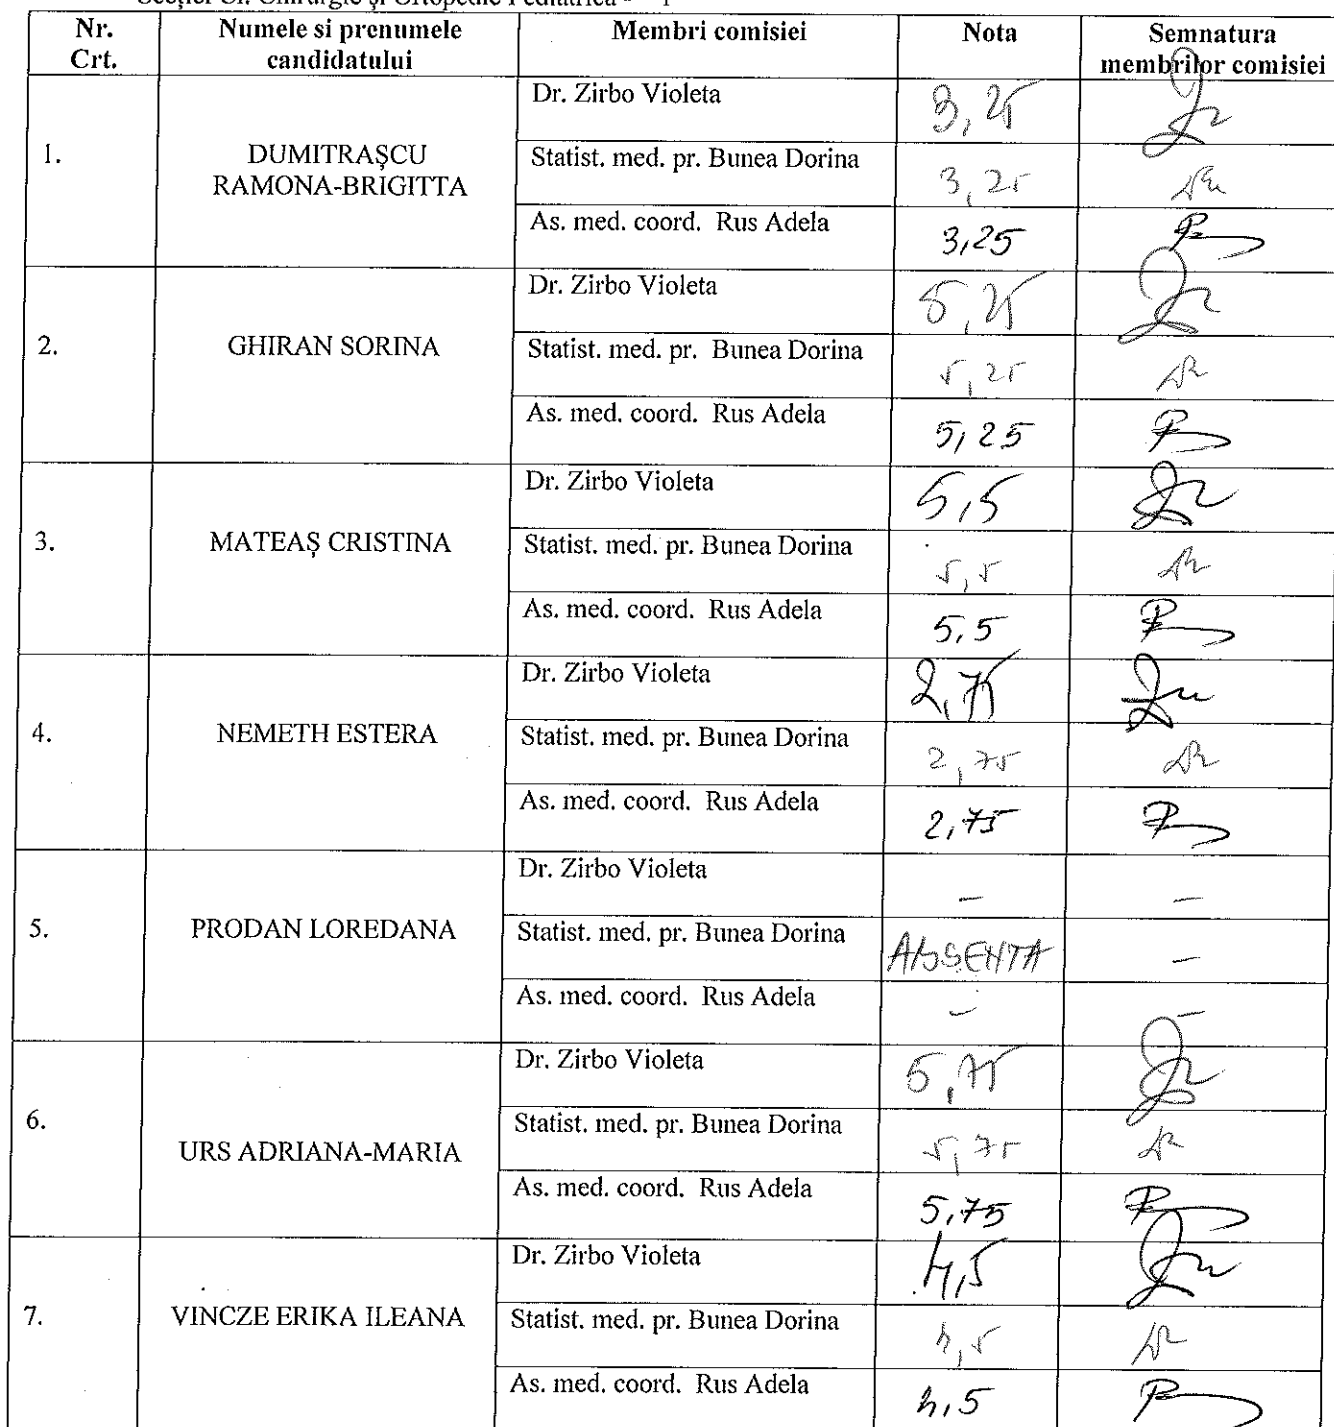 Secției Cl. Chirurgie și Ortopedie Pediatrică
Nr. Crt. Numele si prenumele candidatului Membri comisiei Nota Semnatura membrilor comisiei
1. DUMITRAȘCU RAMONA-BRIGITTA
Dr. Zirbo Violeta 3,25
Statist. med. pr. Bunea Dorina 3,25
As. med. coord. Rus Adela 3,25
2. GHIRAN SORINA
Dr. Zirbo Violeta 5,25
Statist. med. pr. Bunea Dorina 5,25
As. med. coord. Rus Adela 5,25
3. MATEAȘ CRISTINA
Dr. Zirbo Violeta 5,5
Statist. med. pr. Bunea Dorina 5,5
As. med. coord. Rus Adela 5,5
4. NEMETH ESTERA
Dr. Zirbo Violeta 2,75
Statist. med. pr. Bunea Dorina 2,75
As. med. coord. Rus Adela 2,75
5. PRODAN LOREDANA
Dr. Zirbo Violeta - -
Statist. med. pr. Bunea Dorina ABSENTA -
As. med. coord. Rus Adela - -
6. URS ADRIANA-MARIA
Dr. Zirbo Violeta 5,75
Statist. med. pr. Bunea Dorina 5,75
As. med. coord. Rus Adela 5,75
7. VINCZE ERIKA ILEANA
Dr. Zirbo Violeta 4,5
Statist. med. pr. Bunea Dorina 4,5
As. med. coord. Rus Adela 4,5